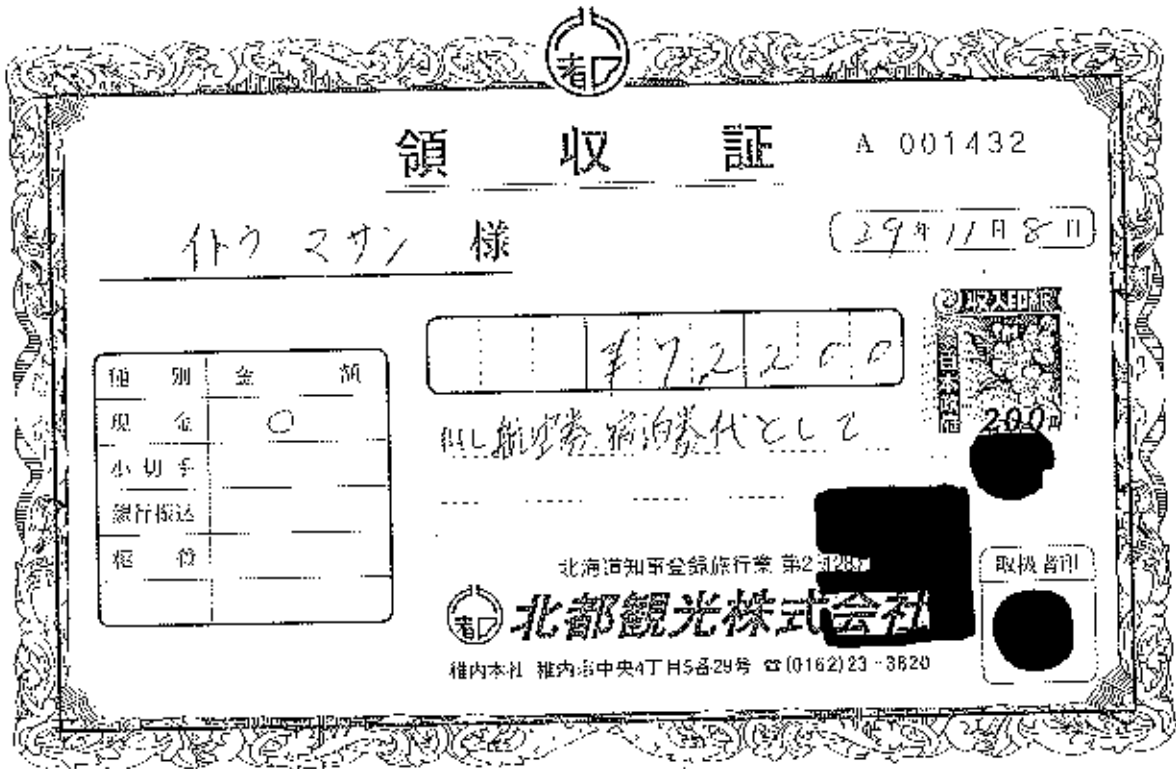 領収証
A 001432
イトウ マサシ 様
29年11月8日
収入印紙
200円
¥72200
種別 金額
現金 ○
小切手
銀行振込
但し航空券、宿泊券代として
北海道知事登録旅行業 第2-
北都観光株式会社
取扱者印
稚内本社 稚内市中央4丁目5番29号 ☎(0162)23-3820